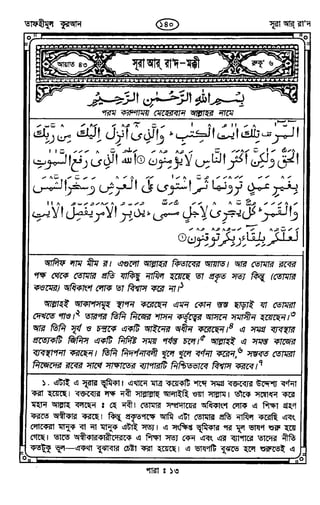 তাফহীমুল কুরআন
১৪০
সূরা আর্ রা'দ
আয়াত ৪৩
সূরা আর্ রা'দ-মক্কী
রুকূ' ৬
بِسْمِ اللهِ الرَّحْمٰنِ الرَّحِيْمِ
পরম করুণাময় মেহেরবান আল্লাহর নামে
الٓمّٓرٰ تِلْكَ اٰيٰتُ الْكِتٰبِ ؕ وَالَّذِيْٓ اُنْزِلَ اِلَيْكَ مِنْ رَّبِّكَ
الْحَقُّ وَلٰكِنَّ اَكْثَرَ النَّاسِ لَا يُؤْمِنُوْنَ ① اَللهُ الَّذِيْ رَفَعَ السَّمٰوٰتِ
بِغَيْرِ عَمَدٍ تَرَوْنَهَا ثُمَّ اسْتَوٰى عَلَى الْعَرْشِ وَسَخَّرَ الشَّمْسَ
وَالْقَمَرَ ؕ كُلٌّ يَّجْرِيْ لِاَجَلٍ مُّسَمًّى ؕ يُدَبِّرُ الْاَمْرَ يُفَصِّلُ الْاٰيٰتِ
لَعَلَّكُمْ بِلِقَآءِ رَبِّكُمْ تُوْقِنُوْنَ ②
আলিফ লাম মীম র। এগুলো আল্লাহর কিতাবের আয়াত। আর তোমার রবের
পক্ষ থেকে তোমার প্রতি যাকিছু নাযিল হয়েছে তা প্রকৃত সত্য কিন্তু (তোমার
কওমের) অধিকাংশ লোক তা বিশ্বাস করে না।১
আল্লাহই আকাশসমূহ স্থাপন করেছেন এমন কোন স্তম্ভ ছাড়াই যা তোমরা
দেখতে পাও।২ তারপর তিনি নিজের শাসন কর্তৃত্বের আসনে সমাসীন হয়েছেন।৩
আর তিনি সূর্য ও চন্দ্রকে একটি আইনের অধীন করেছেন।৪ এ সমগ্র ব্যবস্থার
প্রত্যেকটি জিনিস একটি নির্দিষ্ট সময় পর্যন্ত চলে।৫ আল্লাহই এ সমস্ত কাজের
ব্যবস্থাপনা করছেন। তিনি নিদর্শনাবলী খুলে খুলে বর্ণনা করেন,৬ সম্ভবত তোমরা
নিজেদের রবের সাথে সাক্ষাতের ব্যাপারটি নিশ্চিতভাবে বিশ্বাস করবে।৭
১. এটাই এ সূরার ভূমিকা। এখানে মাত্র কয়েকটি শব্দে সমগ্র বক্তব্যের উদ্দেশ্য বর্ণনা
করা হয়েছে। বক্তব্যের লক্ষ নবী সাল্লাল্লাহু আলাইহি ওয়া সাল্লাম। তাঁকে সম্বোধন করে
মহান আল্লাহ বলছেন : হে নবী। তোমার সম্প্রদায়ের অধিকাংশ লোক এ শিক্ষা গ্রহণ
করতে অস্বীকার করছে। কিন্তু প্রকৃতপক্ষে আমি এটা তোমার প্রতি নাযিল করেছি এবং
লোকেরা মানুক বা না মানুক এটাই সত্য। এ সংক্ষিপ্ত ভূমিকার পর মূল ভাষণ শুরু হয়ে
গেছে। তাতে অস্বীকারকারীদেরকে এ শিক্ষা সত্য কেন এবং এর ব্যাপারে তাদের নীতি
কতটুকু ভুল—একথা বুঝাবার চেষ্টা করা হয়েছে। এ ভাষণটি বুঝতে হলে শুরুতেই এ
পারা : ১৩